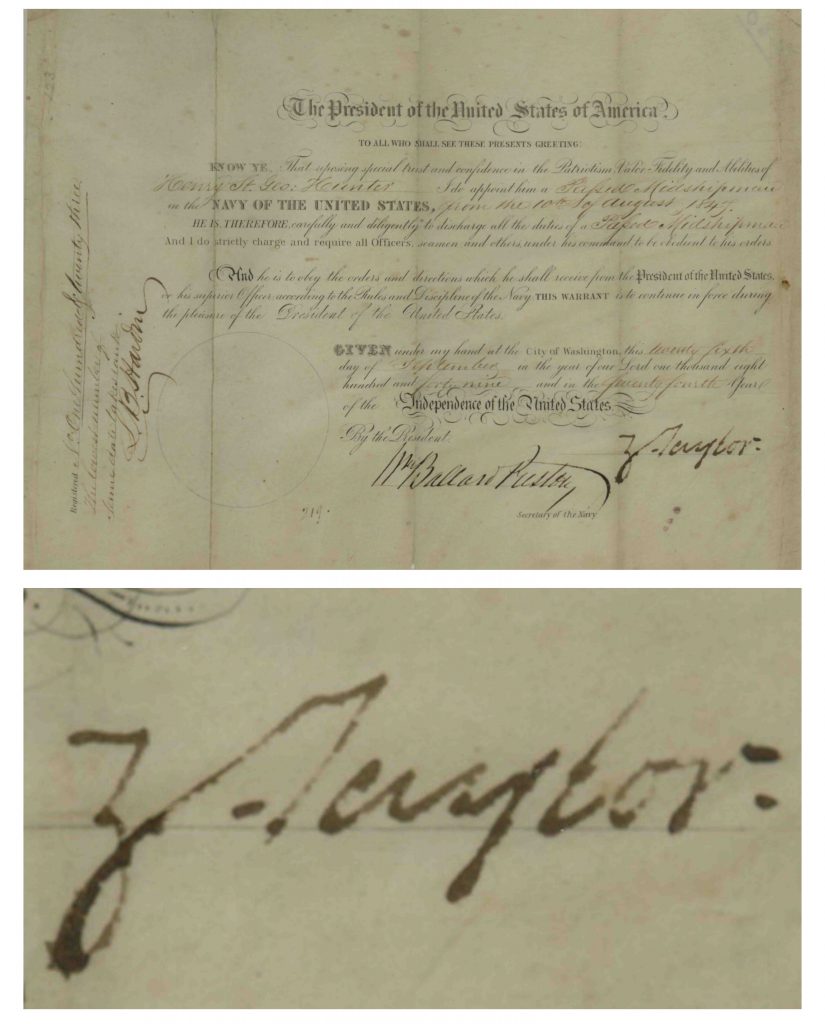 The President of the United States of America.
TO ALL WHO SHALL SEE THESE PRESENTS GREETING:
KNOW YE, That reposing special trust and confidence in the Patriotism, Valor, Fidelity and Abilities of
Henry St. Geo: Hunter I do appoint him a Passed Midshipman
in the NAVY OF THE UNITED STATES, from the 10th of August 1847.
HE IS, THEREFORE, carefully and diligently to discharge all the duties of a Passed Midshipman
And I do strictly charge and require all Officers, seamen and others, under his command to be obedient to his orders
And he is to obey the orders and directions which he shall receive from the President of the United States,
or his superior Officer, according to the Rules and Discipline of the Navy THIS WARRANT is to continue in force during
the pleasure of the President of the United States.
GIVEN under my hand at the City of Washington, this twenty sixth
day of September in the year of our Lord one thousand eight
hundred and forty nine and in the Seventy fourth Year
of the Independence of the United States
By the President.
Z. Taylor.
Wm Ballard Preston
Secretary of the Navy
219.
Registered No. One hundred & twenty three.
The lowest number of
same date takes rank.
L. B. Hardin
Z. Taylor.